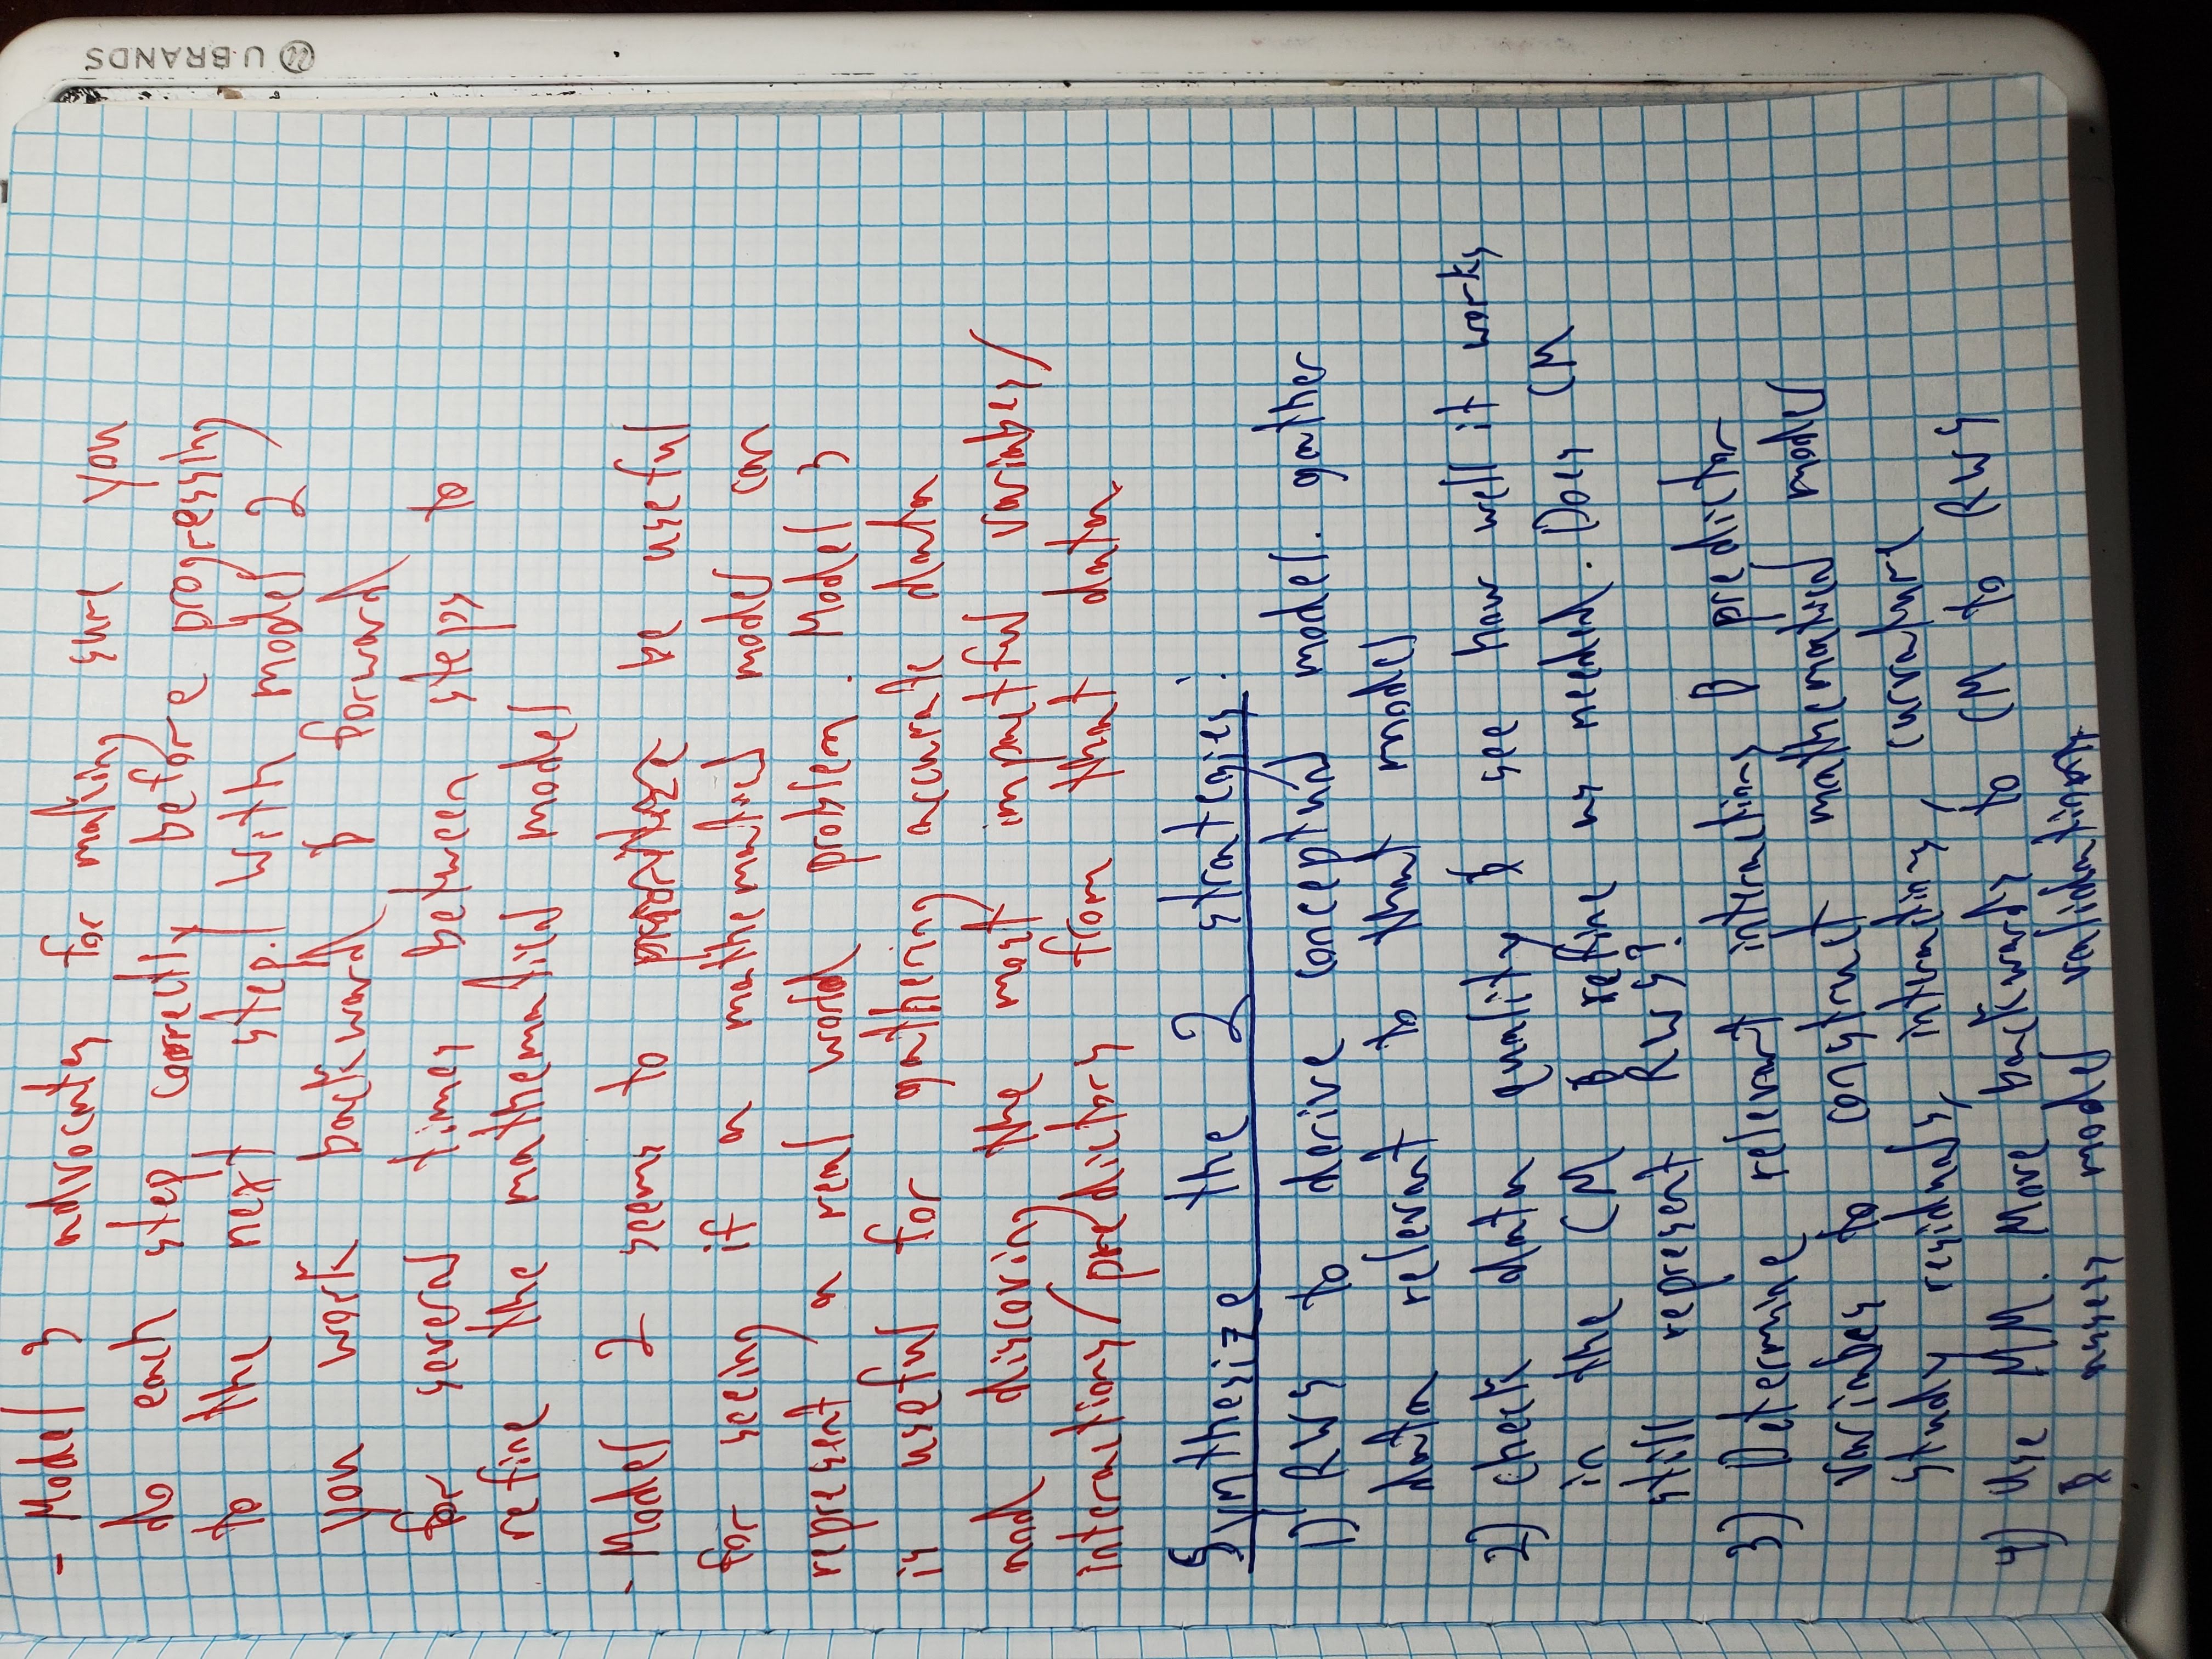 - Model 3 advocates for making sure you
do each step correctly before progressing
to the next step. / With model 2
you work backward & forward
for several times between steps to
refine the mathematical model
- Model 2 seems to be useful
for seeing if a mathematical model can
represent a real world problem. Model 3
is useful for gathering accurate data
and discovring the most impactful variabes/
interactions/predictors from that data
Synthesize the 2 strategies:
1) RWS to derive conceptual model. gather
data relevant to that model
2) check data quality & see how well it works
in the CM & refine as needed. Does CM
still represent RWS?
3) Determine relevant interactions & predictor
variabes to construct mathematical model
study residuals, interactions, curvature
4) Use MM. Move backwards to CM to RWS
& assess model validations
U BRANDS